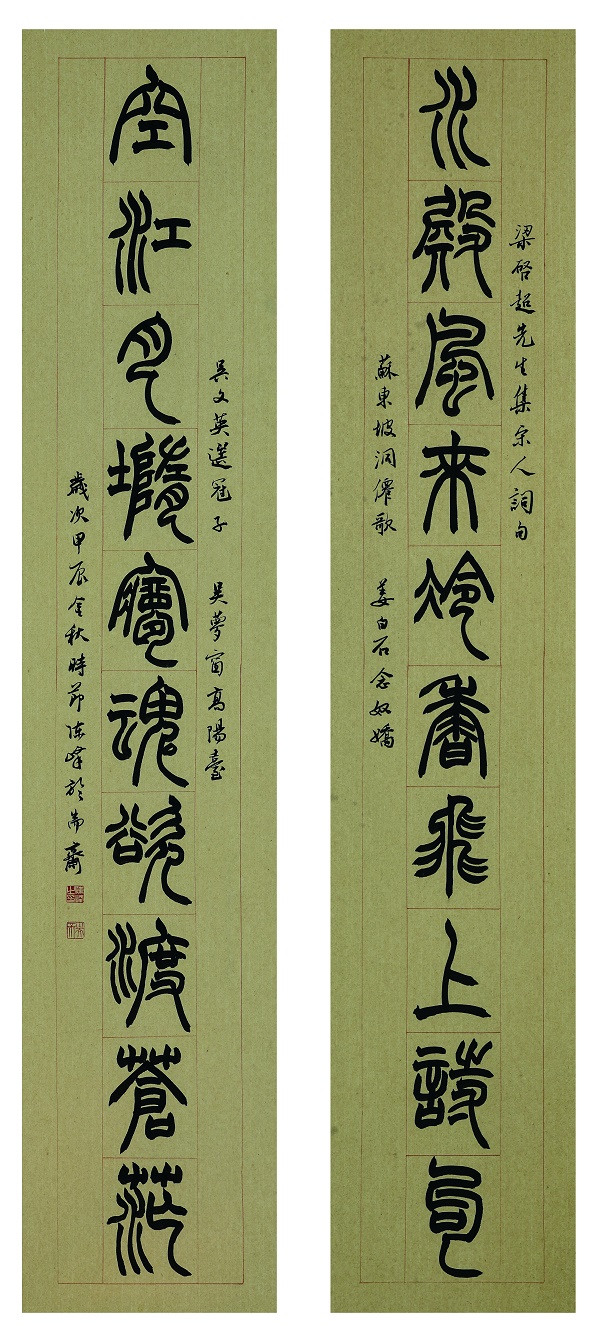 梁啓超先生集宋人詞句
水殿風來冷香飛上詩句
蘇東坡洞僊歌 姜白石念奴嬌
吳文英選冠子 吳夢窗高陽臺
空江月墮夢魂欲渡蒼茫
歲次甲辰金秋時節陳峰於齋